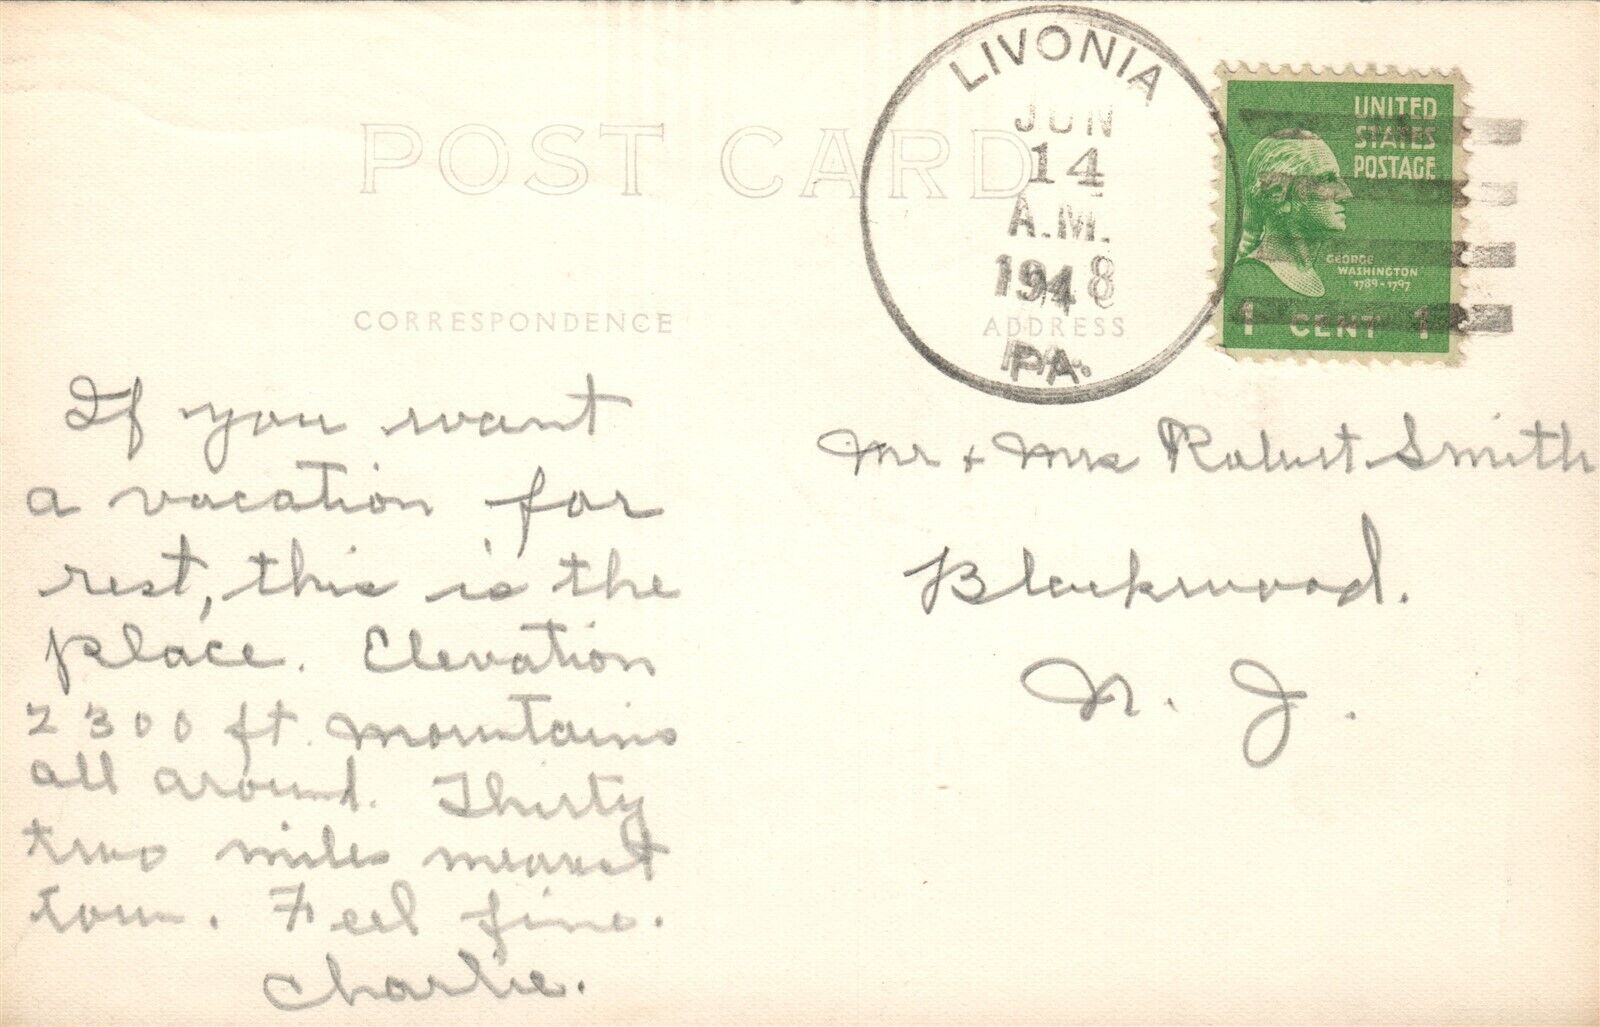 POST CARD
CORRESPONDENCE
ADDRESS
LIVONIA
JUN
14
A.M.
1948
PA.
UNITED
STATES
POSTAGE
GEORGE
WASHINGTON
1789-1797
1 CENT 1
If you want
a vacation for
rest, this is the
place. Elevation
2300 ft. mountains
all around. Thirty
two miles nearest
town. Feel fine.
Charlie.
Mr + Mrs Robert Smith
Blackwood.
N. J.